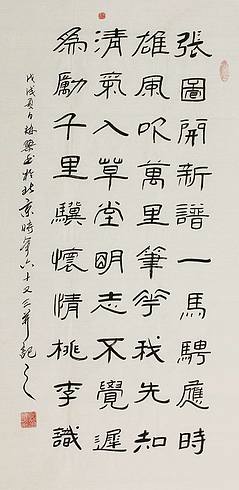 張圖開新譜一馬騁應時
雄風吹萬里筆華我先知
清氣入草堂明志不覺遲
為勵千里驥懷情桃李識
戊戌夏月
於北京時年六十又三并記之